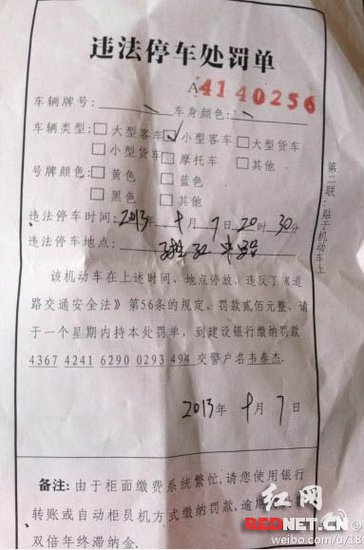 违法停车处罚单
A4140256
车辆牌号： 车身颜色：
车辆类型：□大型客车 ☑小型客车 □大型货车
□小型货车 □摩托车 □其他
号牌颜色：□黄色 □蓝色
□黑色 □其他
违法停车时间：2013年十月7日20时30分
违法停车地点：
该机动车在上述时间、地点停放，违反了《道
路交通安全法》第56条的规定，罚款贰佰元整，请
于一个星期内持本处罚单，到建设银行缴纳罚款
4367 4241 6290 0293 494 交警户名韦泰杰.
2013年十月7日
备注：由于柜面缴费系统繁忙,请您使用银行
转账或自动柜员机方式缴纳罚款,逾期
双倍年终滞纳金.
第二联：贴于机动车上
红网
REDNET.CN
weibo.com/u/18